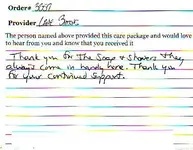 Order#
Provider
The person named above provided this care package and would love
to hear from you and know that you received it
Thank you for the soap & showers they
always come in handy here. Thank you
for your continued support.